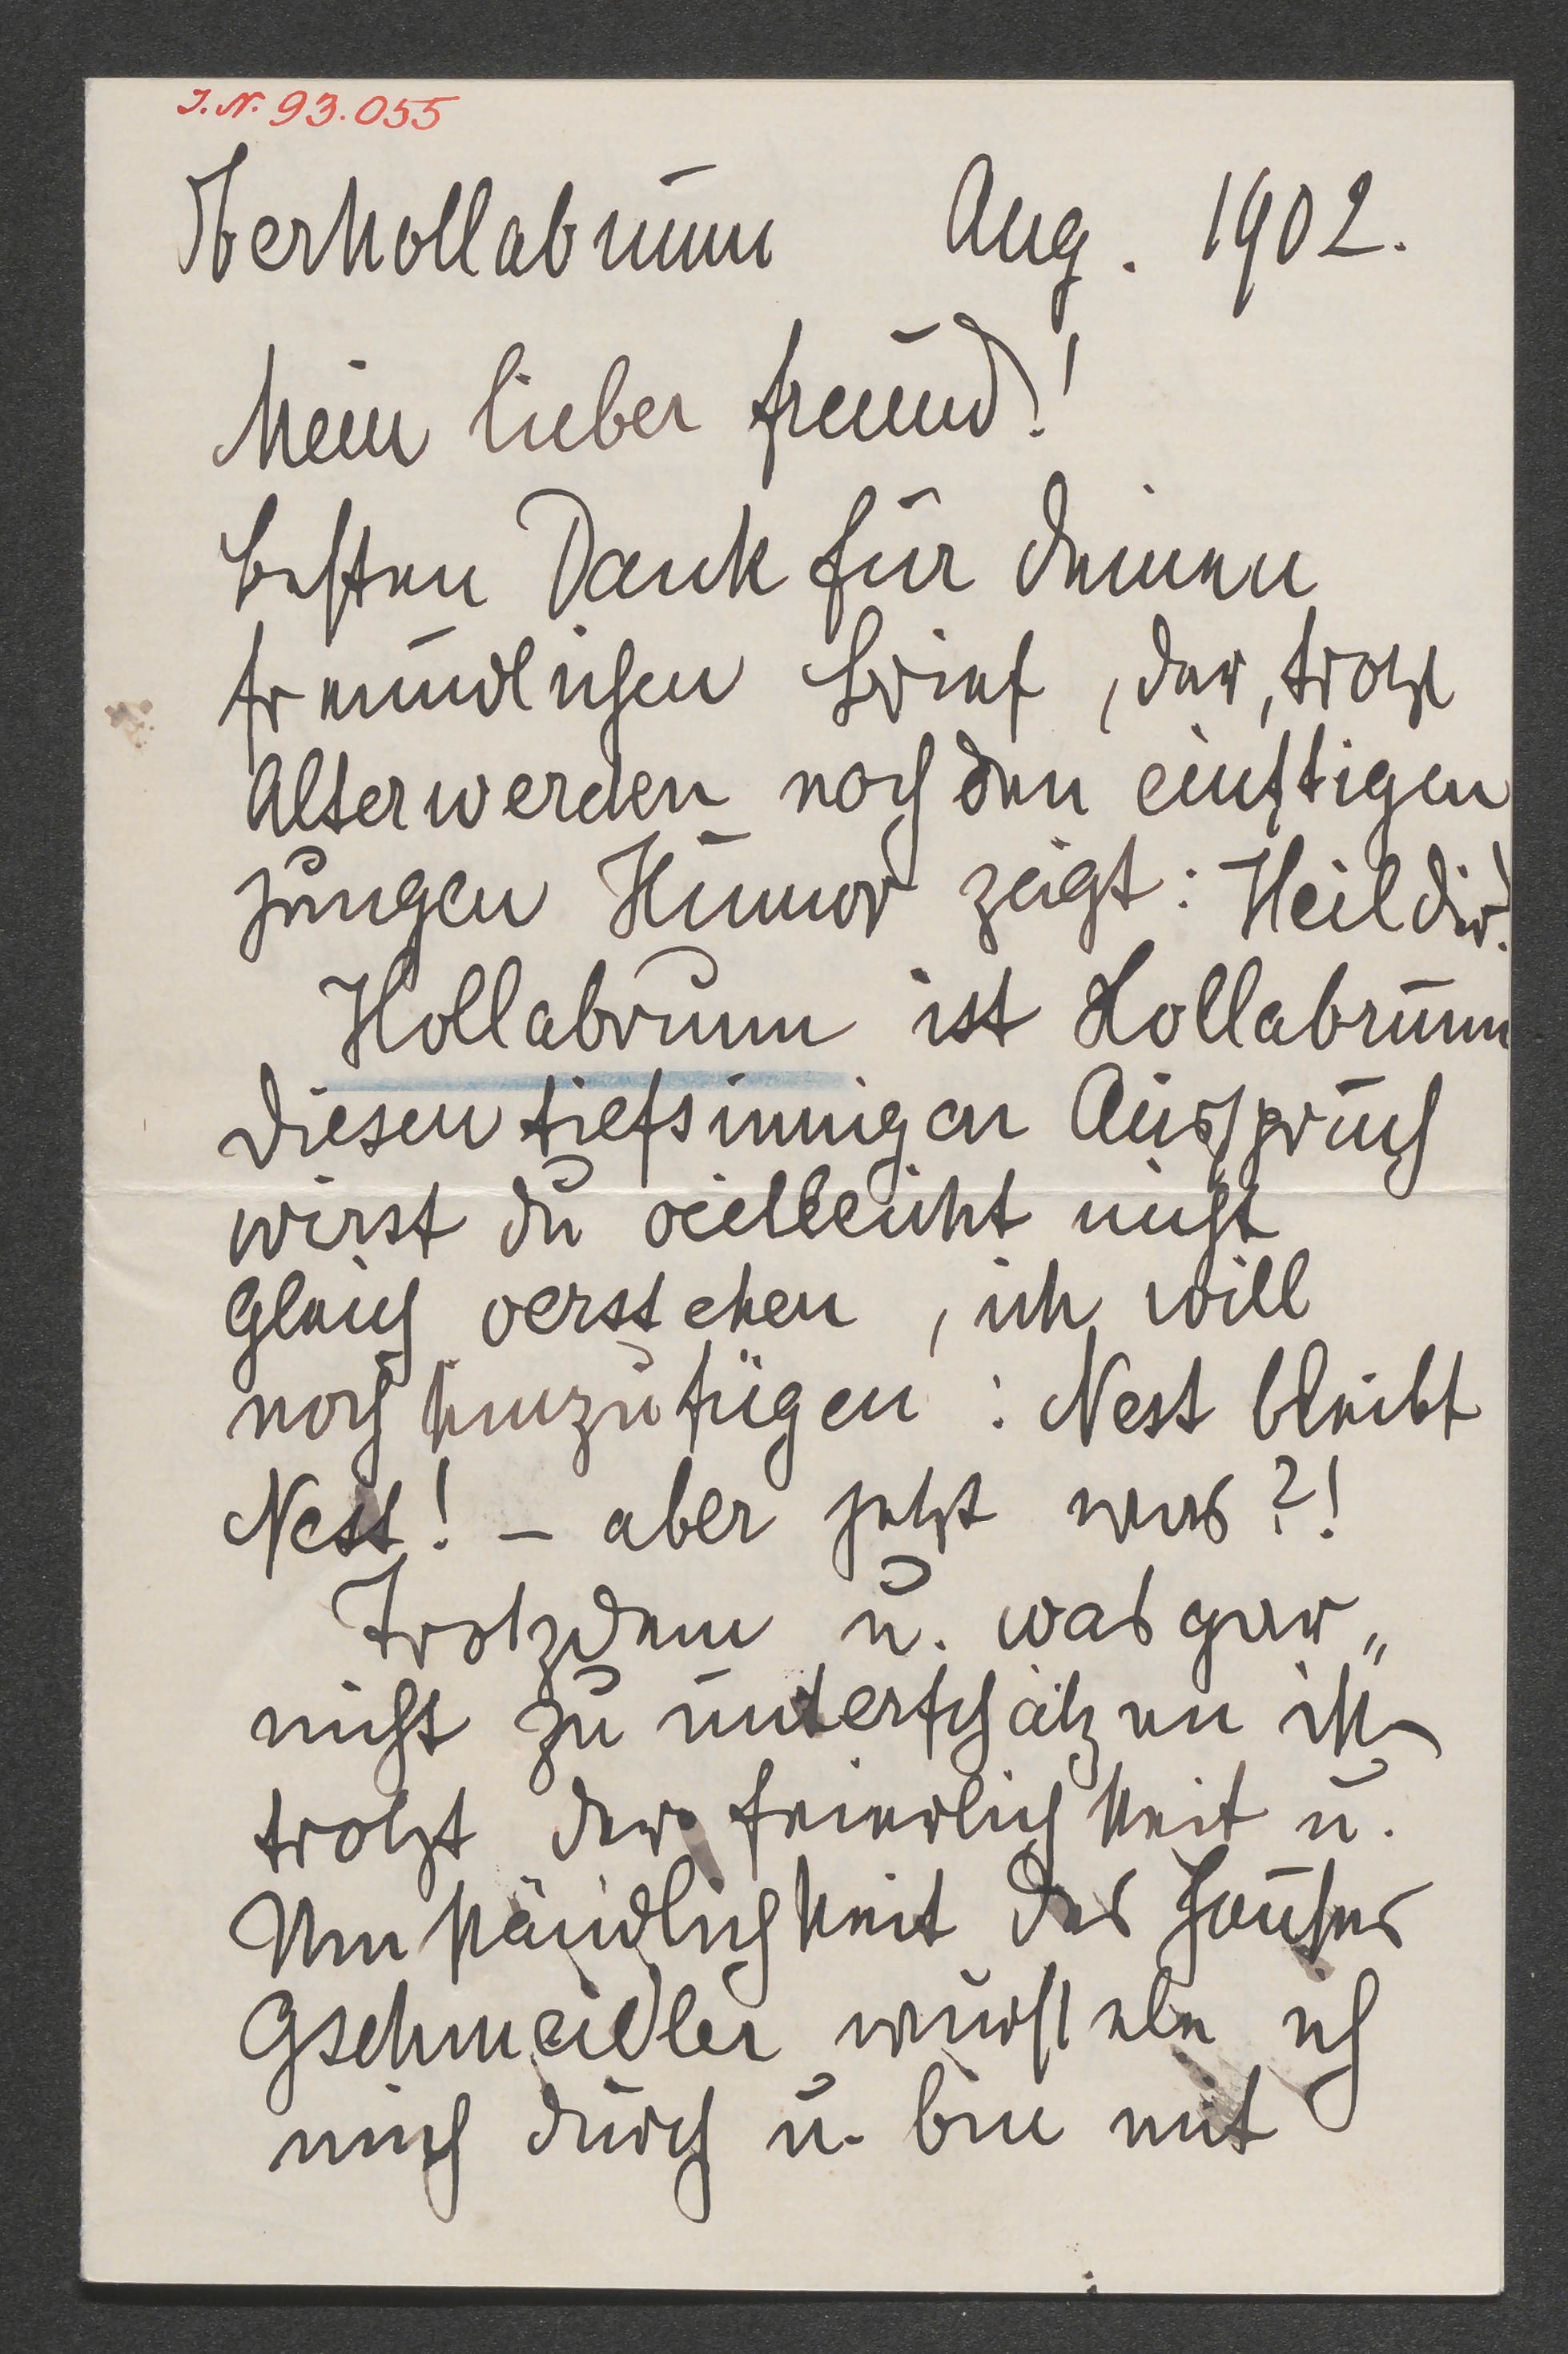 I. N. 93.055
Oberhollabrunn Aug. 1902.
Mein lieber Freund!
Besten Dank für deinen
freundlichen Brief, der, trotz
Älterwerden noch den einstigen
jungen Humor zeigt: Heil dir!
Hollabrunn ist Hollabrunn
diesen tiefsinnigen Ausspruch
wirst du vielleicht nicht
gleich verstehen, ich will
noch hinzufügen: Nest bleibt
Nest! – aber jetzt was?!
Trotzdem u. was gar
nicht zu unterschätzen ist
trotzt der Feierlichkeit u.
Umständlichkeit des Hauses
Gschmeidler wurstele ich
mich durch u. bin mit